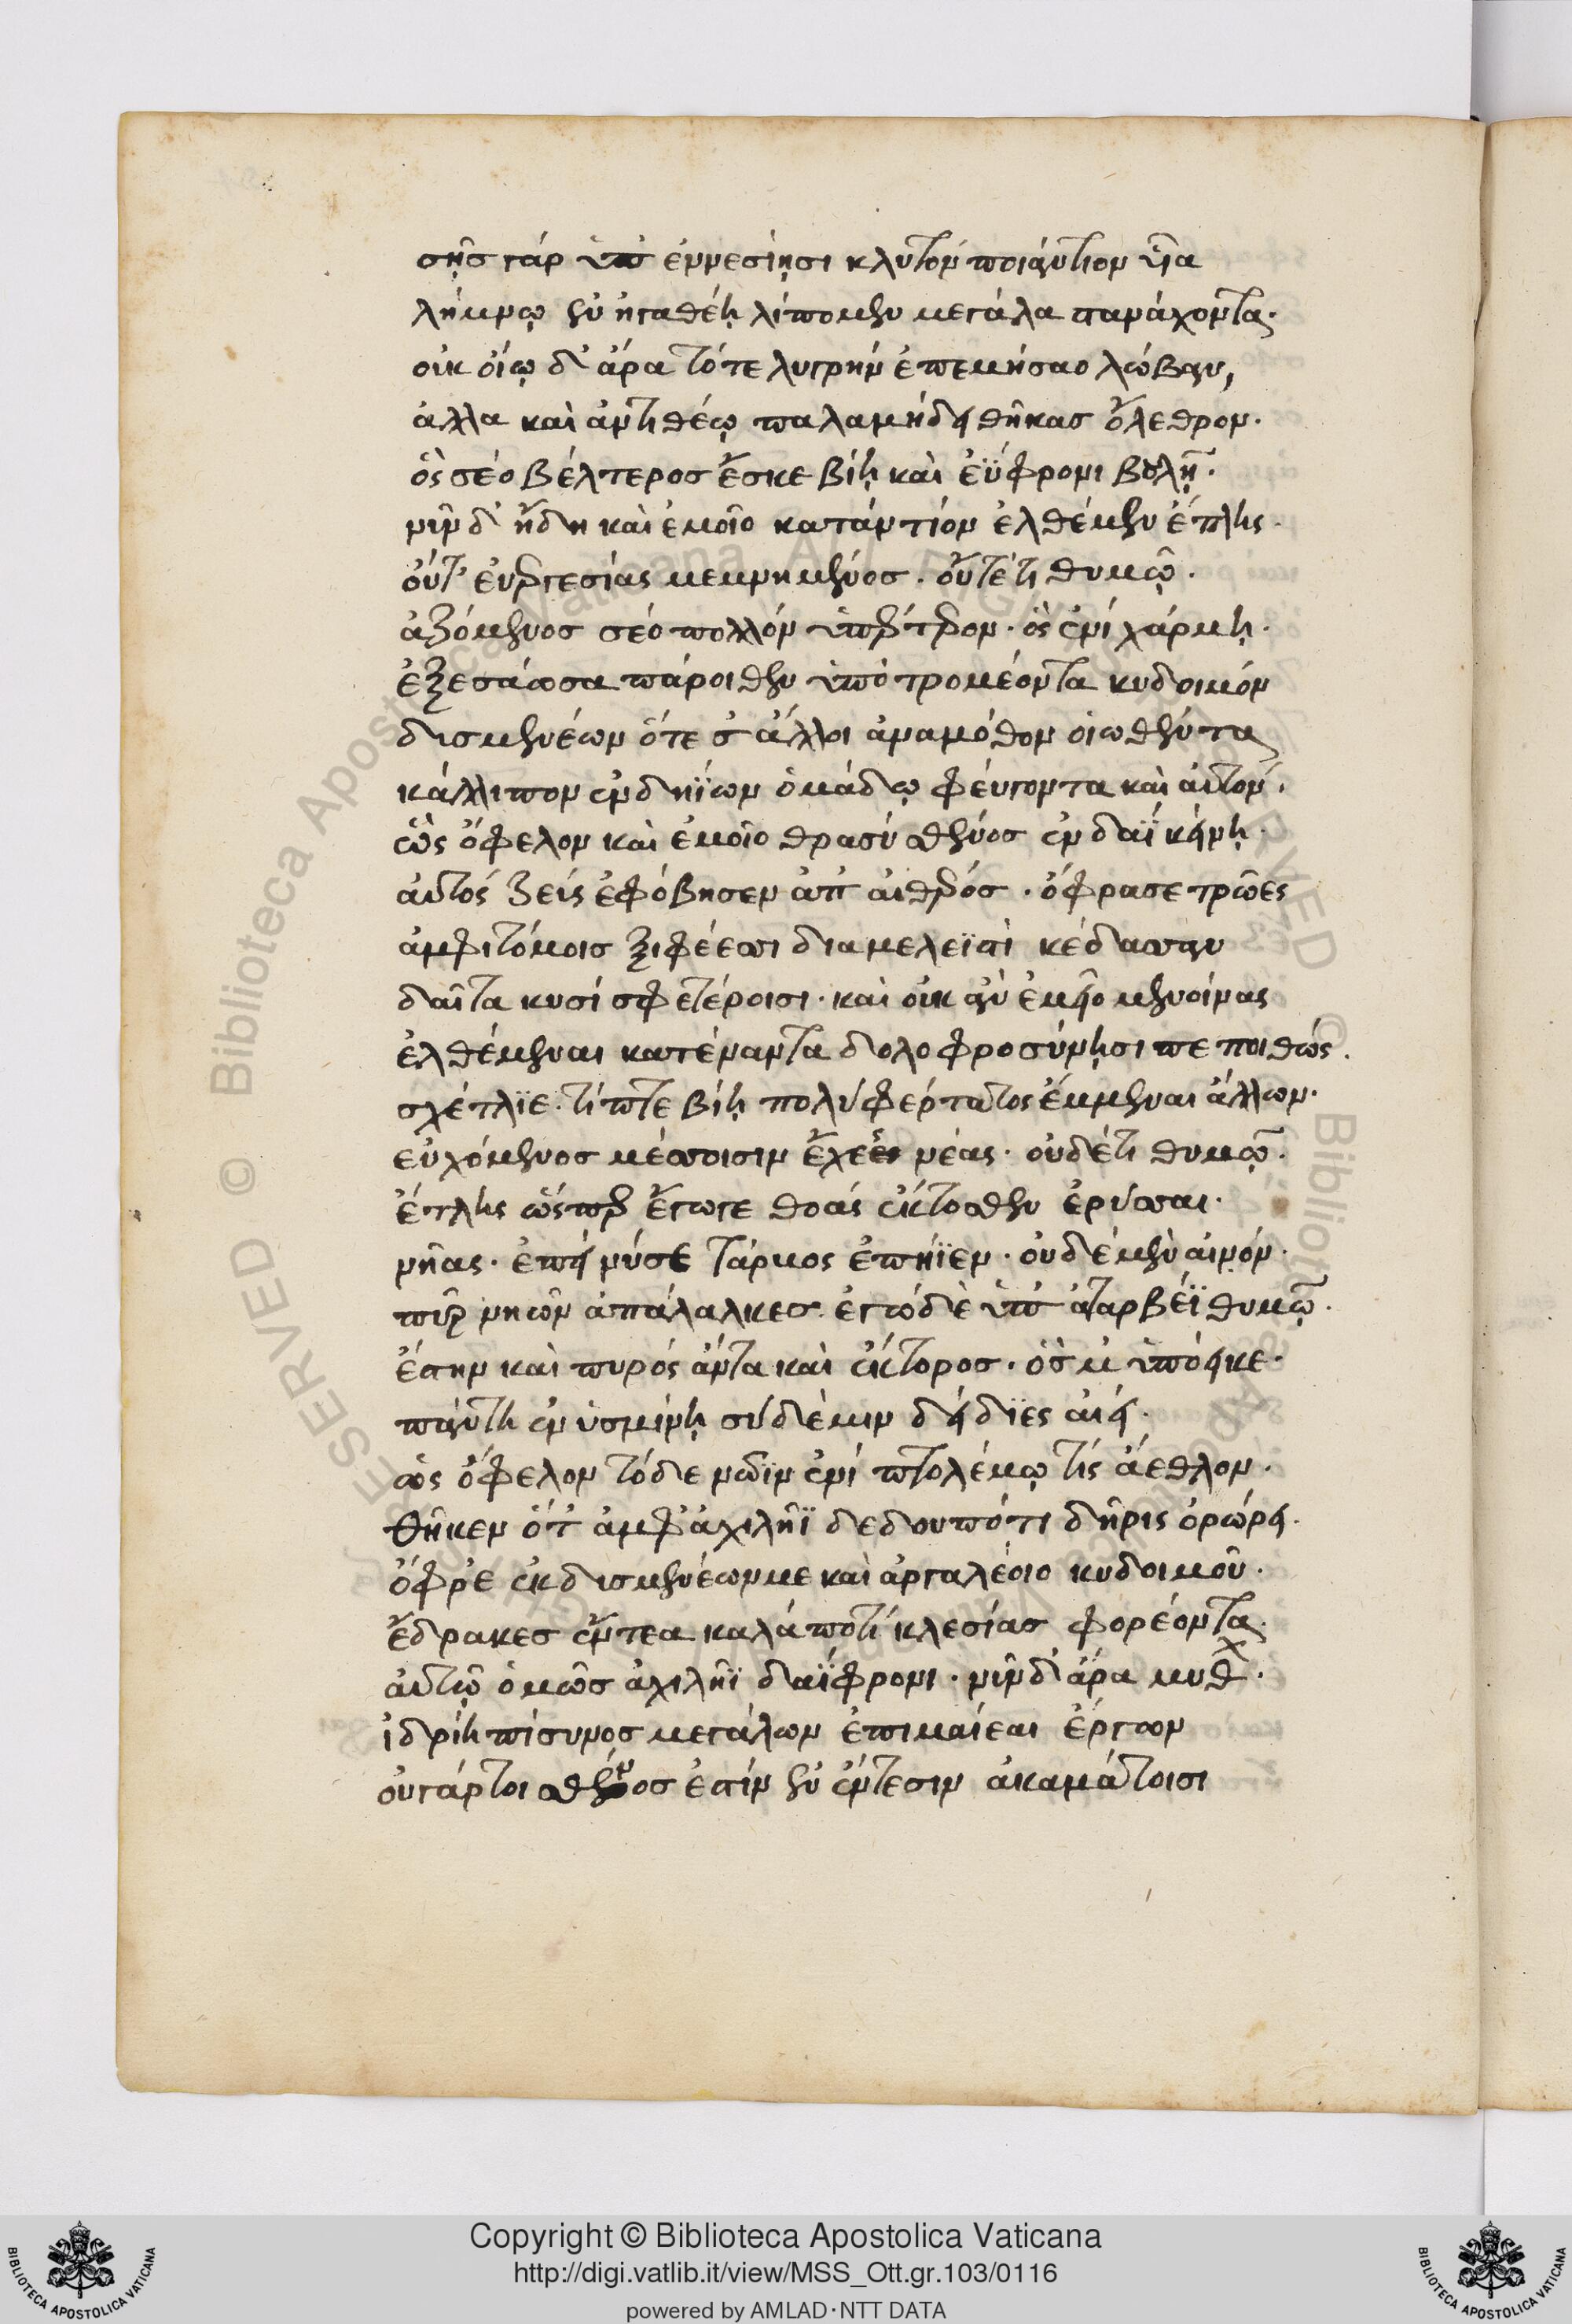 σῇς γάρ ὑπ' ἐννεσίῃσι κλυτόν ποιάντιον υἷα
λήμνῳ ἐν ἠγαθέῃ λίπομεν μεγάλα στανάχοντα.
οὐκ οἴῳ δ' ἄρα τότε λυγρήν ἐπεμήσαο λώβαν,
ἀλλα καὶ ἀντιθέῳ παλαμήδει θῆκας ὄλεθρον.
ὃς σέο βέλτερος ἔσκε βίῃ καὶ ἐΰφρονι βουλῇ.
νῦν δ' ἤδη καὶ ἐμοῖο κατάντίον ἐλθέμεν ἔτλης.
οὔτ' εὐεργεσίας μεμνημένος. οὔτέτι θυμῷ.
ἀζόμενος σέο πολλόν ὑπέρτερον. ὅς ἐνί χάρμῃ.
ἐξεσάωσα πάροιθεν ὑπὸτρομέοντα κυδοιμόν
δυσμενέων ὅτε σ' ἄλλοι ἀναμόθον οἰωθέντα
κάλλιπον ἐν δηΐων ὁμάδῳ φεύγοντα καὶ αὐτόν.
ὡς ὄφελον καὶ ἐμοῖο θρασύ σθένος ἐν δαῒ κείνῃ.
αὐτός ζεύς ἐφόβησεν ἀπ' αἰθέρος. ὄφρασε τρῶες
ἀμφιτόμοις ξιφέεσσι διαμελεϊστὶ κέδασσαν
δαῖτα κυσί σφετέροισι. καὶ οὐκ ἂν ἐμεῖο μενοίνας
ἐλθέμεναι κατέναντα δολοφροσύνῃσι πεποιθώς.
σχέτλϊε. τίπτε βίῃ πολύφέρτατος ἔμμεναι ἄλλων.
εὐχόμενος μέσσοισιν ἔχες νέας. οὐδέτι θυμῷ.
ἔτλης ὥσπερ ἔγωγε θοάς ἔκτοσθεν ἐρύσσαι.
νῆας. ἐπεί νύσε τάρμος ἐπήϊεν. οὐδέμὲν αἰνόν.
πῦρ νηῶν ἀπάλαλκες. ἐγώδὲ ὑπ' ἀταρβέϊ θυμῷ.
ἔστην καὶ πυρός ἄντα καὶ ἕκτορος. ὅσ μ' ὑπόεικε.
πάντῃ ἐν ὑσμίνῃ σύδέμιν δείδϊες αἰεί.
ὡς ὄφελον τόδε νῶϊν ἐνί πτολέμῳ τίς ἄεθλον.
θῆκεν ὅτ' ἀμφ' ἀχιλῆϊ δεδουπότι δῆρις ὀρώρει.
ὄφρ' ἐκ δυσμενέωνμε καὶ ἀργαλέοιο κυδοιμοῦ.
ἔδρακες ἔντεα καλά ποτί κλεσίας φορέοντα.
αὐτῷ ὁμῶς ἀχιλῆϊ δαΐφρονι. νῦν δ' ἄρα μυθ.
ἰδρίῃ πίσυνος μεγάλων ἐπιμαίεαι ἔργων
οὐγάρτοι σθένος ἐστίν ἐν ἔντεσιν ἀκαμάτοισι
Copyright © Biblioteca Apostolica Vaticana
http://digi.vatlib.it/view/MSS_Ott.gr.103/0116
powered by AMLAD·NTT DATA